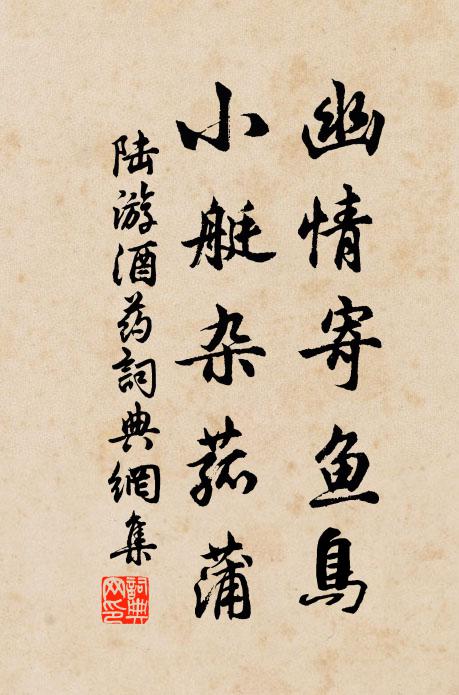 幽情寄鱼鸟
小艇杂菰蒲
陆游酒药詞典網集
詞典